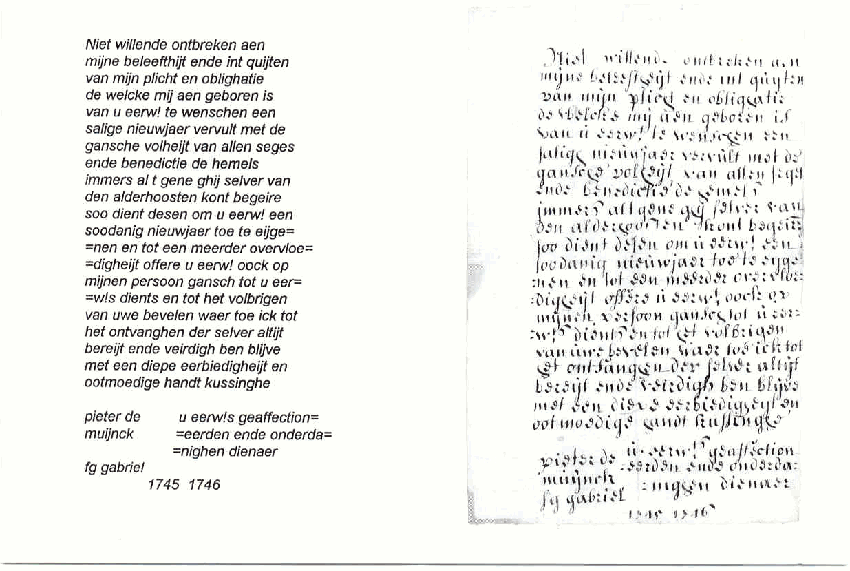 Niet willende ontbreken aen
mijne beleefthijt ende int quijten
van mijn plicht en oblighatie
de welcke mij aen geboren is
van u eerw! te wenschen een
salige nieuwjaer vervult met de
gansche volheijt van allen seges
ende benedictie de hemels
immers al t gene ghij selver van
den alderhoosten kont begeire
soo dient desen om u eerw! een
soodanig nieuwjaer toe te eijge=
=nen en tot een meerder overvloe=
=digheijt offere u eerw! oock op
mijnen persoon gansch tot u eer=
=w!s dients en tot het volbrigen
van uwe bevelen waer toe ick tot
het ontvanghen der selver altijt
bereijt ende veirdigh ben blijve
met een diepe eerbiedigheijt en
ootmoedige handt kussinghe
pieter de u eerw!s geaffection=
muijnck =eerden ende onderda=
=nighen dienaer
fg gabriel
1745 1746
Niet willende ontbreken aen
mijne beleefheijt ende int quijten
van mijn plicht en obligatie
de welcke mij aen geboren is
van u eerw! te wenschen een
salige nieuwjaer vervult met de
gansche volheijt van allen seges
ende benedictie de hemels
immers alt gene ghij selver van
den alderhoosten kont begeire
soo dient desen om u eerw! een
soodanig nieuwjaer toe te eijge=
=nen en tot een meerder overvloe=
=digheijt offere u eerw! oock op
mijnen persoon gansch tot u eer=
=w!s dients en tot het volbrigen
van uwe bevelen waer toe ick tot
het ontfanghen der selver altijt
bereijt ende veirdigh ben blijve
met een diepe eerbiedigheijt en
ootmoedige handt kussinghe
pieter de u eerw!s geaffection
muijnck =eerden ende onderda=
=nighen dienaer
fg gabriel
1745 1746